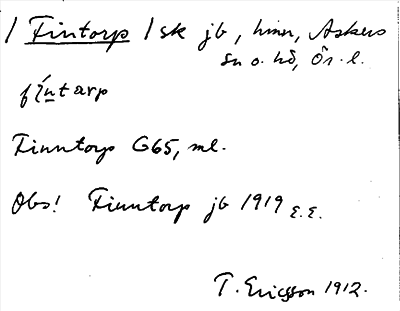 / Fintorp / sk jb, hmn, Askers
sn o. hd, Ör. l.
fíntarp
Finntorp G65, ml.
Obs! Finntorp jb 1919 E.E.
T. Ericsson 1912.